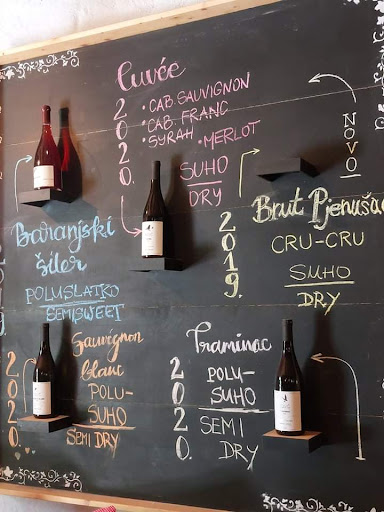 Cuvée
• CAB. SAUVIGNON
• CAB. FRANC
• SYRAH • MERLOT
2020.
SUHO
DRY
NOVO
Baranjski
šiler
POLUSLATKO
SEMISWEET
Brut Pjenušac
CRU-CRU
2019.
SUHO
DRY
Sauvignon
blanc
2020.
POLU-
SUHO
SEMI DRY
Traminac
2020.
POLU-
SUHO
SEMI
DRY